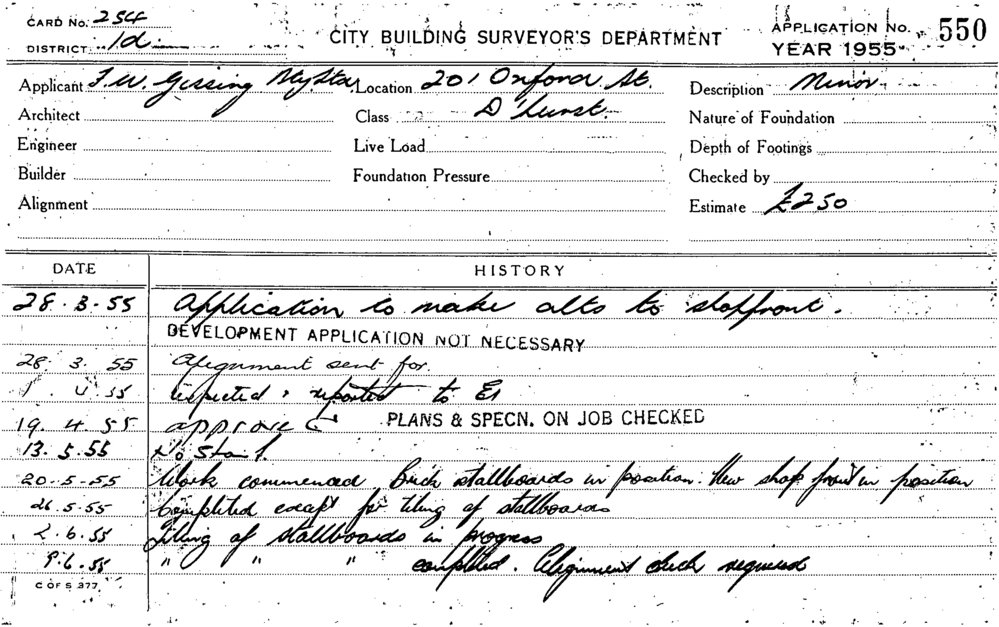 CARD NO. 254
DISTRICT 1d
CITY BUILDING SURVEYOR'S DEPARTMENT
APPLICATION NO. 550
YEAR 1955
Applicant F.W. Gissing
Location 201 Oxford St.
Description Minor
Architect
Class D'hurst.
Nature of Foundation
Engineer
Live Load
Depth of Footings
Builder
Foundation Pressure
Checked by
Alignment
Estimate £250
DATE HISTORY
28.3.55 Application to make alts to shopfront.
DEVELOPMENT APPLICATION NOT NECESSARY
28.3.55 Alignment sent for.
1.4.55 inspected & reported to
19.4.55 approve PLANS & SPECN. ON JOB CHECKED
13.5.55 No Start.
20-5-55 Work commenced. Brick stallboards in position. New shop front in position
26.5.55 Completed except for tiling of stallboards
2.6.55 Tiling of stallboards in progress
9.6.55 " " " completed. Alignment check required
C OF S 377